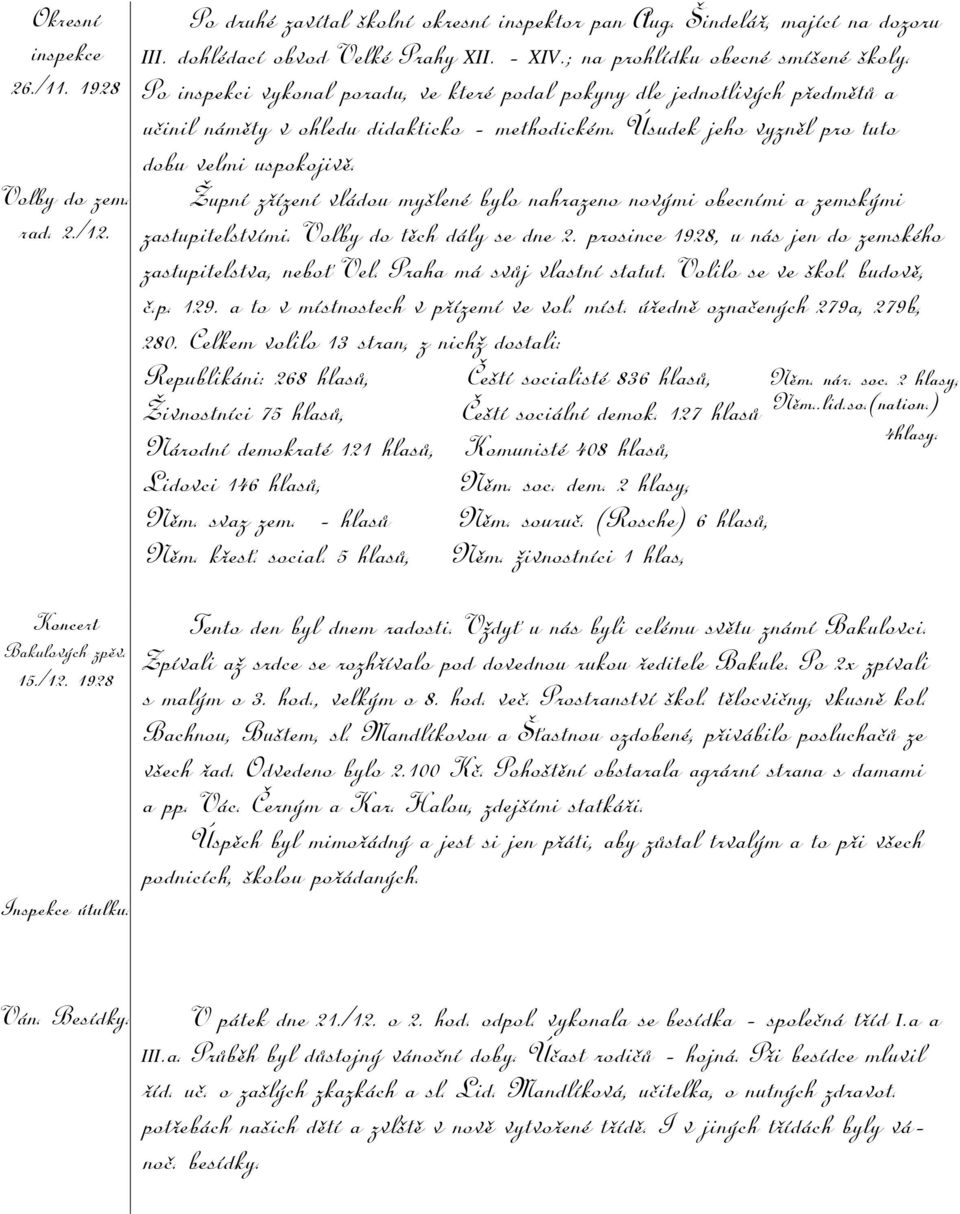 Okresní
inspekce
26./11. 1928
Po druhé zavítal školní okresní inspektor pan Aug. Šindelář, mající na dozoru
III. dohlédací obvod Velké Prahy XII. - XIV.; na prohlídku obecné smíšené školy.
Po inspekci vykonal poradu, ve které podal pokyny dle jednotlivých předmětů a
učinil náměty v ohledu didakticko - methodickém. Úsudek jeho vyzněl pro tuto
dobu velmi uspokojivě.
Volby do zem.
rad. 2./12.
Župní zřízení vládou myšlené bylo nahrazeno novými obecními a zemskými
zastupitelstvími. Volby do těch dály se dne 2. prosince 1928, u nás jen do zemského
zastupitelstva, neboť Vel. Praha má svůj vlastní statut. Volilo se ve škol. budově,
č.p. 129. a to v místnostech v přízemí ve vol. míst. úředně označených 279a, 279b,
280. Celkem volilo 13 stran, z nichž dostali:
Republikáni: 268 hlasů,
Živnostníci 75 hlasů,
Národní demokraté 121 hlasů,
Lidovci 146 hlasů,
Něm. svaz zem. - hlasů
Něm. křesť. social. 5 hlasů,
Čeští socialisté 836 hlasů,
Čeští sociální demok. 127 hlasů
Komunisté 408 hlasů,
Něm. soc. dem. 2 hlasy,
Něm. souruč. (Rosche) 6 hlasů,
Něm. živnostníci 1 hlas,
Něm. nár. soc. 2 hlasy,
Něm..lid.so.(nation.)
4hlasy.
Koncert
Bakulových zpěv.
15./12. 1928
Tento den byl dnem radosti. Vždyť u nás byli celému světu známí Bakulovci.
Zpívali až srdce se rozhřívalo pod dovednou rukou ředitele Bakule. Po 2x zpívali
s malým o 3. hod., velkým o 8. hod. več. Prostranství škol. tělocvičny, vkusně kol.
Bachnou, Buštem, sl. Mandlíkovou a Šťastnou ozdobené, přivábilo posluchačů ze
všech řad. Odvedeno bylo 2.100 Kč. Pohoštění obstarala agrární strana s damami
a pp. Vác. Černým a Kar. Halou, zdejšími statkáři.
Úspěch byl mimořádný a jest si jen přáti, aby zůstal trvalým a to při všech
podnicích, školou pořádaných.
Inspekce útulku.
Ván. Besídky.
V pátek dne 21./12. o 2. hod. odpol. vykonala se besídka - společná tříd I.a a
III.a. Průběh byl důstojný vánoční doby. Účast rodičů - hojná. Při besídce mluvil
říd. uč. o zašlých zkazkách a sl. Lid. Mandlíková, učitelka, o nutných zdravot.
potřebách našich dětí a zvlště v nově vytvořené třídě. I v jiných třídách byly vá-
noč. besídky.